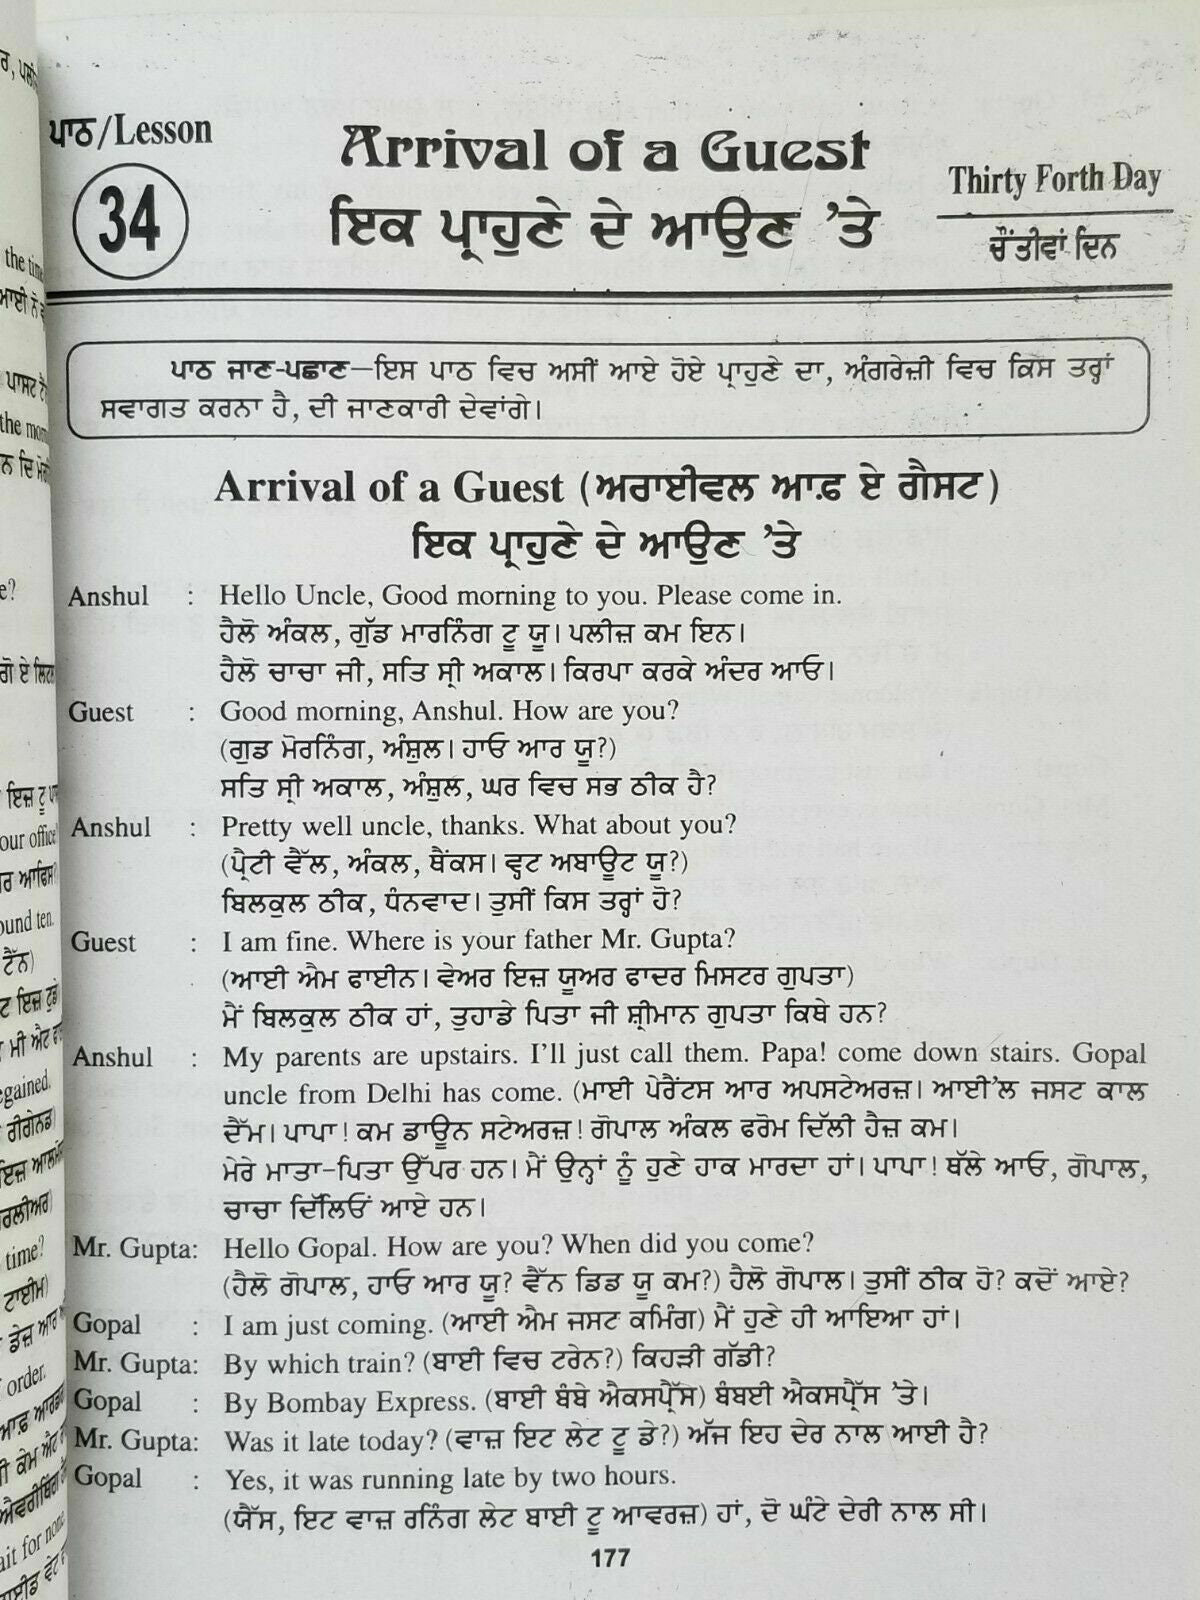 ਪਾਠ/Lesson
34
Arrival of a Guest
ਇਕ ਪ੍ਰਾਹੁਣੇ ਦੇ ਆਉਣ ’ਤੇ
Thirty Forth Day
ਚੌਂਤੀਵਾਂ ਦਿਨ
ਪਾਠ ਜਾਣ-ਪਛਾਣ—ਇਸ ਪਾਠ ਵਿਚ ਅਸੀਂ ਆਏ ਹੋਏ ਪ੍ਰਾਹੁਣੇ ਦਾ, ਅੰਗਰੇਜ਼ੀ ਵਿਚ ਕਿਸ ਤਰ੍ਹਾਂ
ਸਵਾਗਤ ਕਰਨਾ ਹੈ, ਦੀ ਜਾਣਕਾਰੀ ਦੇਵਾਂਗੇ।
Arrival of a Guest (ਅਰਾਈਵਲ ਆਫ਼ ਏ ਗੈਸਟ)
ਇਕ ਪ੍ਰਾਹੁਣੇ ਦੇ ਆਉਣ ’ਤੇ
Anshul : Hello Uncle, Good morning to you. Please come in.
ਹੈਲੋ ਅੰਕਲ, ਗੁੱਡ ਮਾਰਨਿੰਗ ਟੂ ਯੂ। ਪਲੀਜ਼ ਕਮ ਇਨ।
ਹੈਲੋ ਚਾਚਾ ਜੀ, ਸਤਿ ਸ੍ਰੀ ਅਕਾਲ। ਕਿਰਪਾ ਕਰਕੇ ਅੰਦਰ ਆਓ।
Guest : Good morning, Anshul. How are you?
(ਗੁਡ ਮੋਰਨਿੰਗ, ਅੰਸ਼ੁਲ। ਹਾਓ ਆਰ ਯੂ?)
ਸਤਿ ਸ੍ਰੀ ਅਕਾਲ, ਅੰਸ਼ੁਲ, ਘਰ ਵਿਚ ਸਭ ਠੀਕ ਹੈ?
Anshul : Pretty well uncle, thanks. What about you?
(ਪ੍ਰੈਟੀ ਵੈੱਲ, ਅੰਕਲ, ਥੈਂਕਸ। ਵ੍ਹਟ ਅਬਾਊਟ ਯੂ?)
ਬਿਲਕੁਲ ਠੀਕ, ਧੰਨਵਾਦ। ਤੁਸੀਂ ਕਿਸ ਤਰ੍ਹਾਂ ਹੋ?
Guest : I am fine. Where is your father Mr. Gupta?
(ਆਈ ਐਮ ਫਾਈਨ। ਵੇਅਰ ਇਜ਼ ਯੂਅਰ ਫਾਦਰ ਮਿਸਟਰ ਗੁਪਤਾ)
ਮੈਂ ਬਿਲਕੁਲ ਠੀਕ ਹਾਂ, ਤੁਹਾਡੇ ਪਿਤਾ ਜੀ ਸ਼੍ਰੀਮਾਨ ਗੁਪਤਾ ਕਿਥੇ ਹਨ?
Anshul : My parents are upstairs. I’ll just call them. Papa! come down stairs. Gopal
uncle from Delhi has come. (ਮਾਈ ਪੇਰੈਂਟਸ ਆਰ ਅਪਸਟੇਅਰਜ਼। ਆਈ’ਲ ਜਸਟ ਕਾਲ
ਦੈੱਮ। ਪਾਪਾ! ਕਮ ਡਾਊਨ ਸਟੇਅਰਜ਼! ਗੋਪਾਲ ਅੰਕਲ ਫਰੋਮ ਦਿੱਲੀ ਹੈਜ਼ ਕਮ।
ਮੇਰੇ ਮਾਤਾ-ਪਿਤਾ ਉੱਪਰ ਹਨ। ਮੈਂ ਉਨ੍ਹਾਂ ਨੂੰ ਹੁਣੇ ਹਾਕ ਮਾਰਦਾ ਹਾਂ। ਪਾਪਾ! ਥੱਲੇ ਆਓ, ਗੋਪਾਲ,
ਚਾਚਾ ਦਿੱਲਿਓਂ ਆਏ ਹਨ।
Mr. Gupta: Hello Gopal. How are you? When did you come?
(ਹੈਲੋ ਗੋਪਾਲ, ਹਾਓ ਆਰ ਯੂ? ਵੈੱਨ ਡਿਡ ਯੂ ਕਮ?) ਹੈਲੋ ਗੋਪਾਲ। ਤੁਸੀਂ ਠੀਕ ਹੋ? ਕਦੋਂ ਆਏ?
Gopal : I am just coming. (ਆਈ ਐਮ ਜਸਟ ਕਮਿੰਗ) ਮੈਂ ਹੁਣੇ ਹੀ ਆਇਆ ਹਾਂ।
Mr. Gupta: By which train? (ਬਾਈ ਵਿਚ ਟਰੇਨ?) ਕਿਹੜੀ ਗੱਡੀ?
Gopal : By Bombay Express. (ਬਾਈ ਬੰਬੇ ਐਕਸਪ੍ਰੈੱਸ) ਬੰਬਈ ਐਕਸਪ੍ਰੈੱਸ ’ਤੇ।
Mr. Gupta: Was it late today? (ਵਾਜ਼ ਇਟ ਲੇਟ ਟੂ ਡੇ?) ਅੱਜ ਇਹ ਦੇਰ ਨਾਲ ਆਈ ਹੈ?
Gopal : Yes, it was running late by two hours.
(ਯੈੱਸ, ਇਟ ਵਾਜ਼ ਰਨਿੰਗ ਲੇਟ ਬਾਈ ਟੂ ਆਵਰਜ਼) ਹਾਂ, ਦੋ ਘੰਟੇ ਦੇਰੀ ਨਾਲ ਸੀ।
177